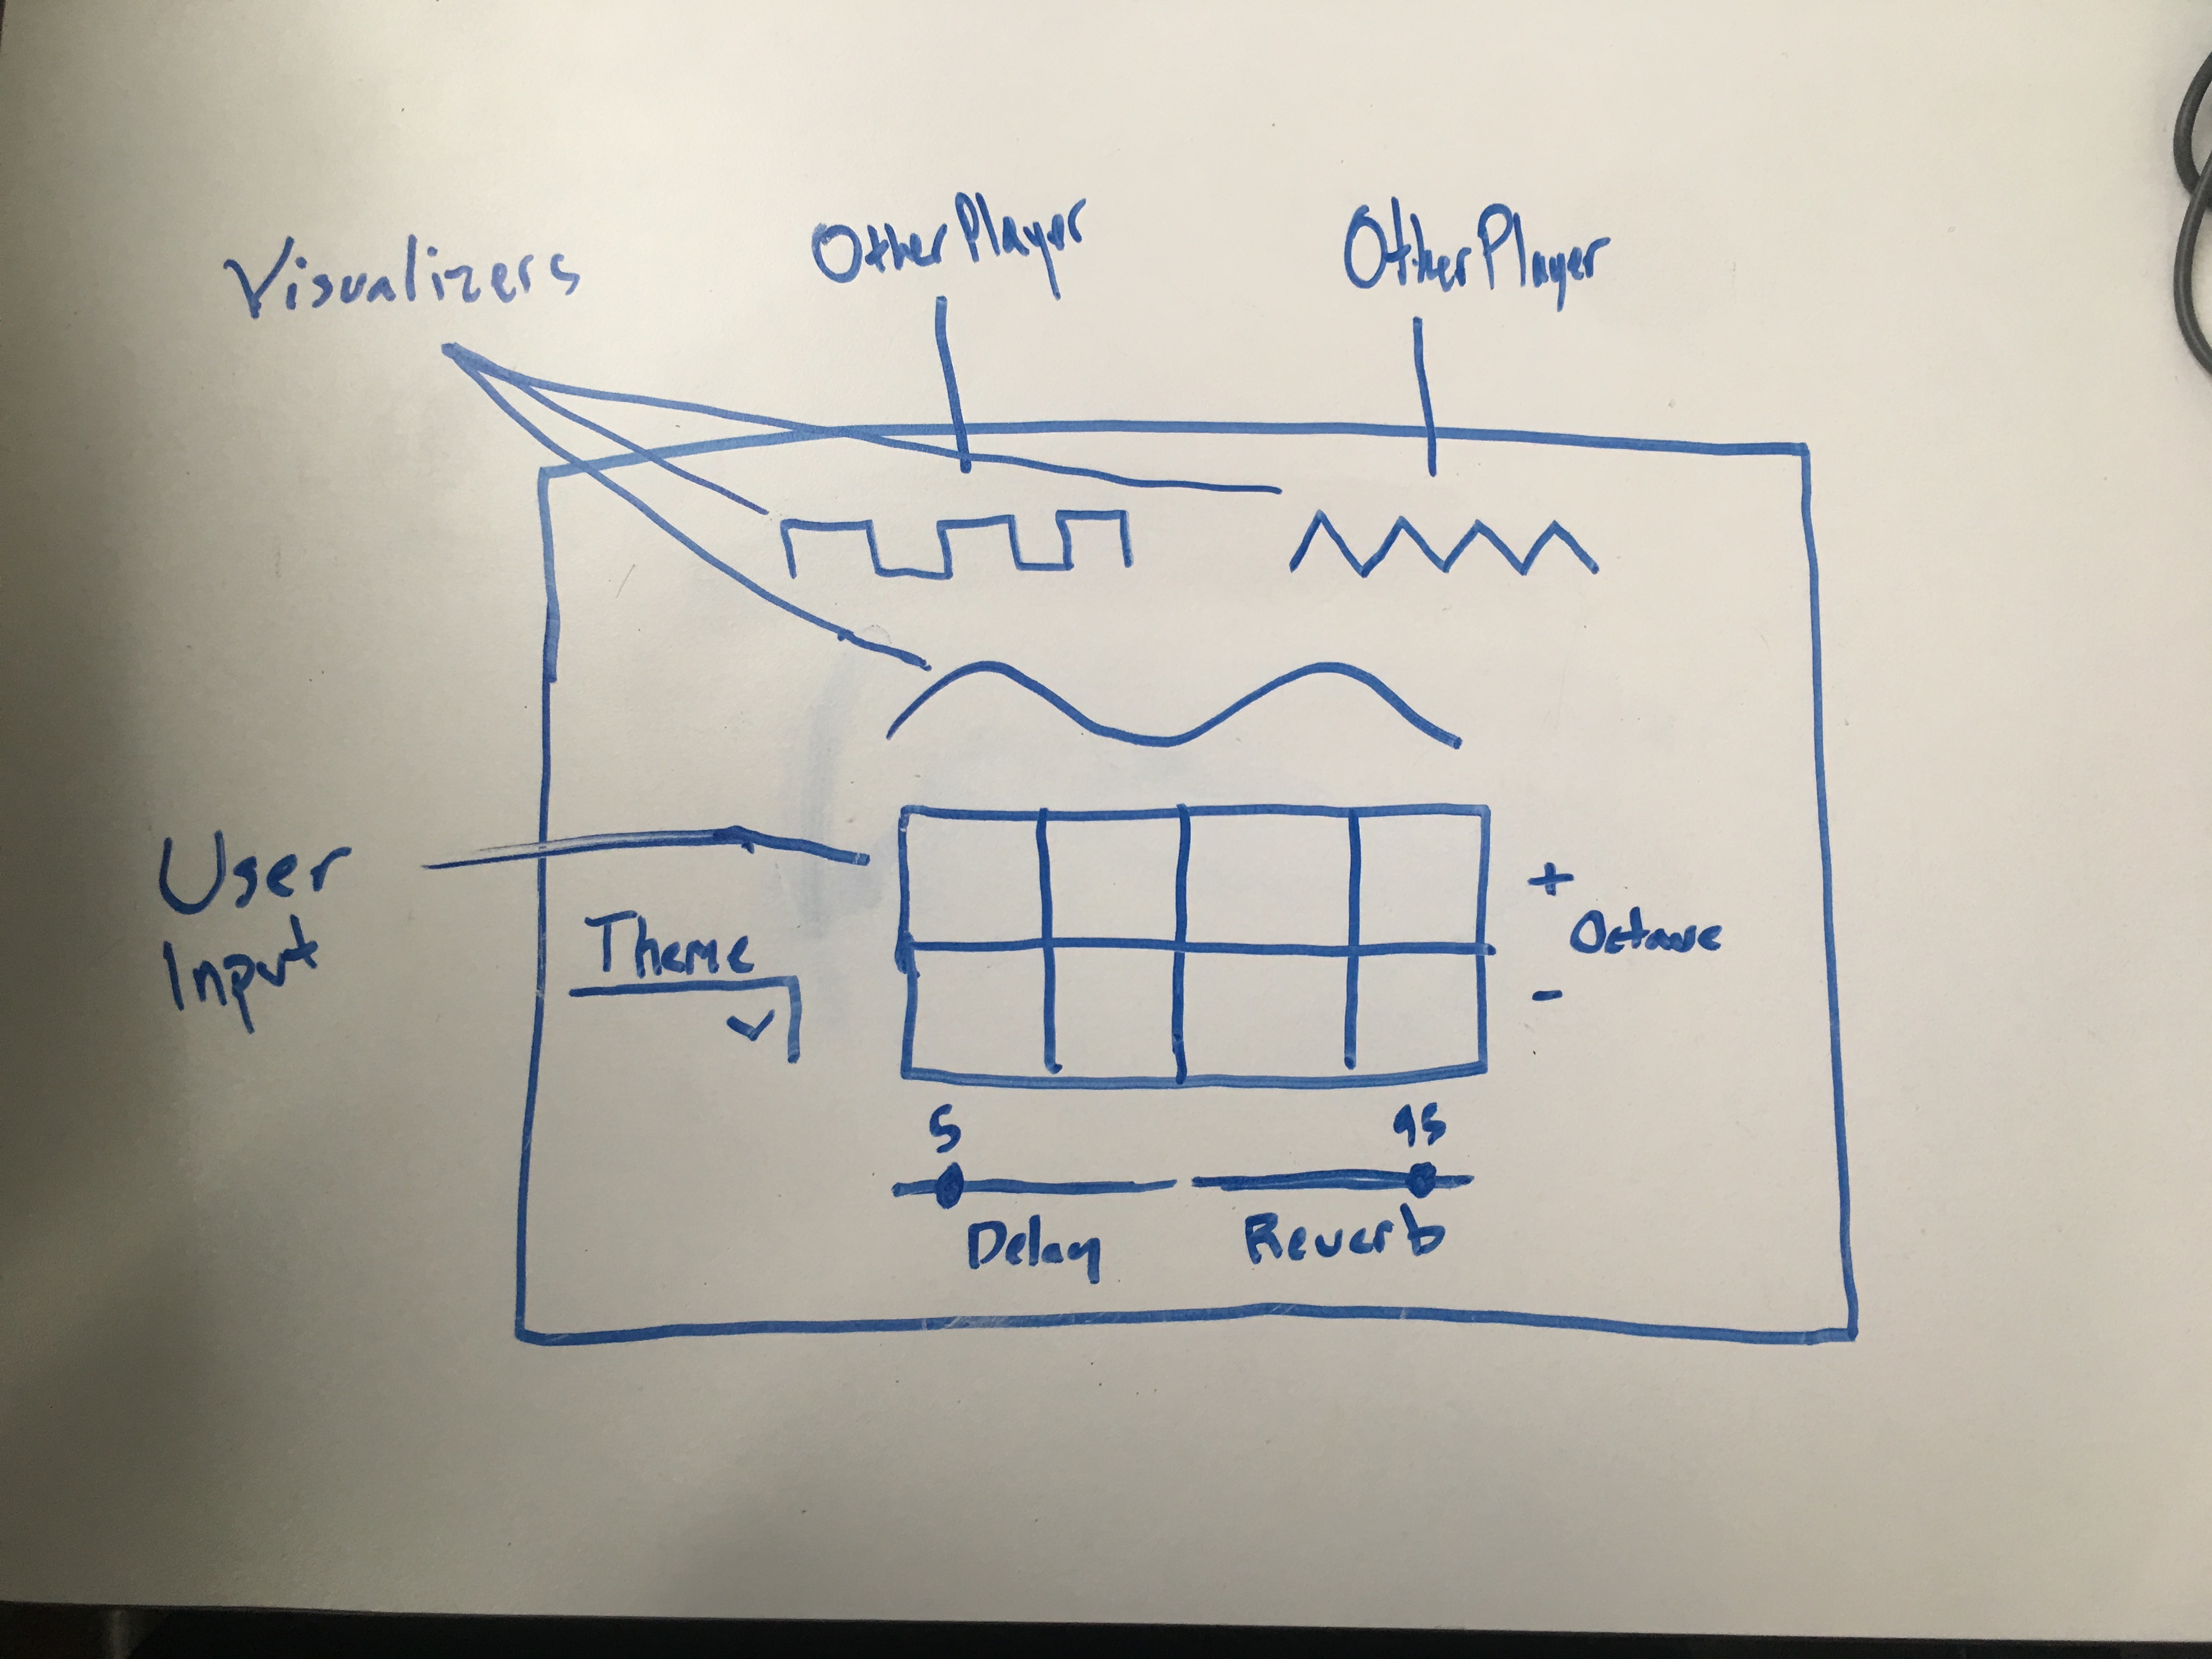 Visualizers
Other Player
Other Player
User
Input
Theme
+
Octave
-
5
95
Delay
Reverb